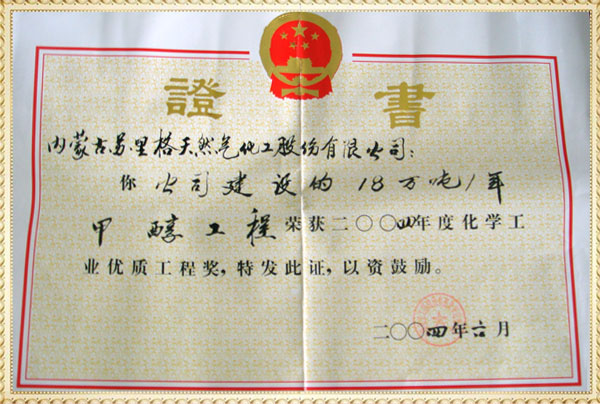 證書
内蒙古苏里格天然气化工股份有限公司：
你公司建设的18万吨/年
甲醇工程荣获二〇〇四年度化学工
业优质工程奖，特发此证，以资鼓励。
二〇〇四年六月